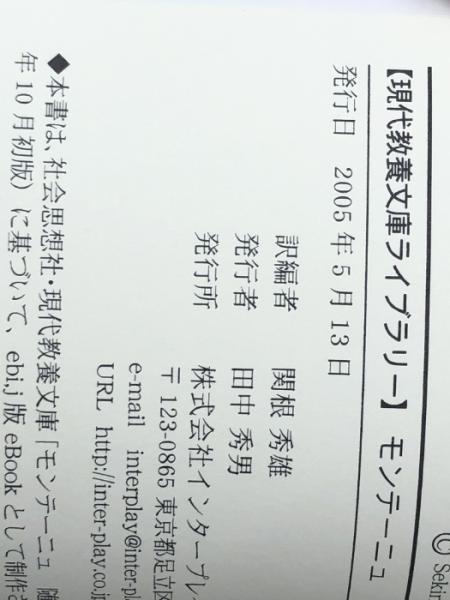 © Sekin
【現代教養文庫ライブラリー】 モンテーニュ
発行日 2005年5月13日
訳編者 関根 秀雄
発行者 田中 秀男
発行所 株式会社インタープレイ
〒123-0865 東京都足立区
e-mail interplay@inter-pl
URL http://inter-play.co.jp
◆本書は、社会思想社・現代教養文庫「モンテーニュ 随
年10月初版）に基づいて、ebi.j版 eBookとして制作さ